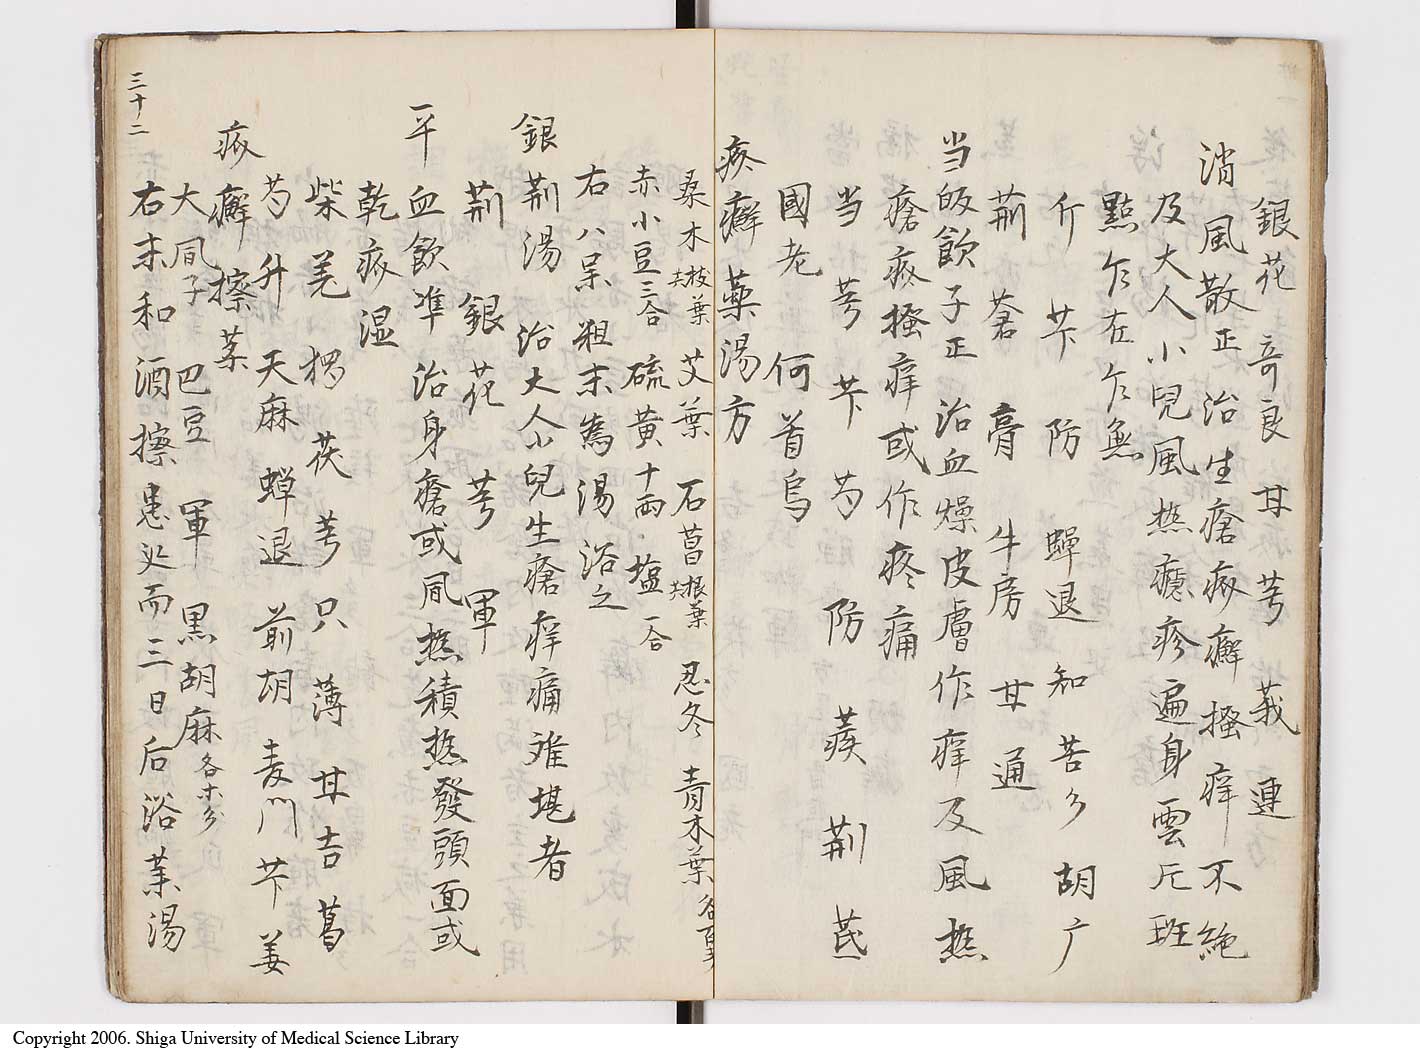 銀花 奇良 甘 芎 莪 連
消風散正 治生瘡疥癬搔痒不絶
及大人小児風热癮疹遍身雲片斑
點乍在乍無
斤 芐 防 蟬退 知 苦參 胡 广
荊 蒼 膏 牛房 甘 通
当皈飲子正 治血燥皮膚作痒及風热
瘡疥搔痒或作疼痛
当 芎 芐 芍 防 蒺 荊 芪
國老 何首烏
疥癬薬湯方
桑木枝葉共 艾葉 石菖根葉共 忍冬 青木葉
赤小豆三合 硫黄十両 塩一合
右八呆粗末為湯浴之
銀荊湯 治大人小児生瘡痒痛难堪者
荊 銀花 芎 軍
一平血飲準 治身瘡或風热積热發頭面或
乾疥湿
柴 羌 桔 茯 芎 只 薄 甘 吉 葛
芍 升 天麻 蟬退 前胡 麦門 芐 姜
疥癬擦薬
大風子 巴豆 軍 黒胡麻
右末和酒擦患処而三日后浴薬湯
三十二
Copyright 2006. Shiga University of Medical Science Library